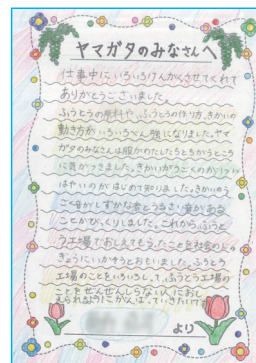 ヤマガタのみなさんへ
仕事中にいろいろけんがくさせてくれて
ありがとうございました。
ふうとうの原料や、ふうとうの作り方、きかいの
動き方がいろいろべん強になりました。ヤマ
ガタのみなさんは服がわたしたちとちがうところ
に気がつきました。きかいがうごくのが
はやいのがはじめて知りました。きかいのう
ごく音がしずかな音とうるさい音がある
ことがびっくりしました。これから、ふうと
う工場でおしえてもらったことを社会のべん
きょうにいかそうとおもいました。ふうとう
工場のことをいろいろしって、ふうとう工場の
ことをぜんぜんしらない人におし
えられるように
より